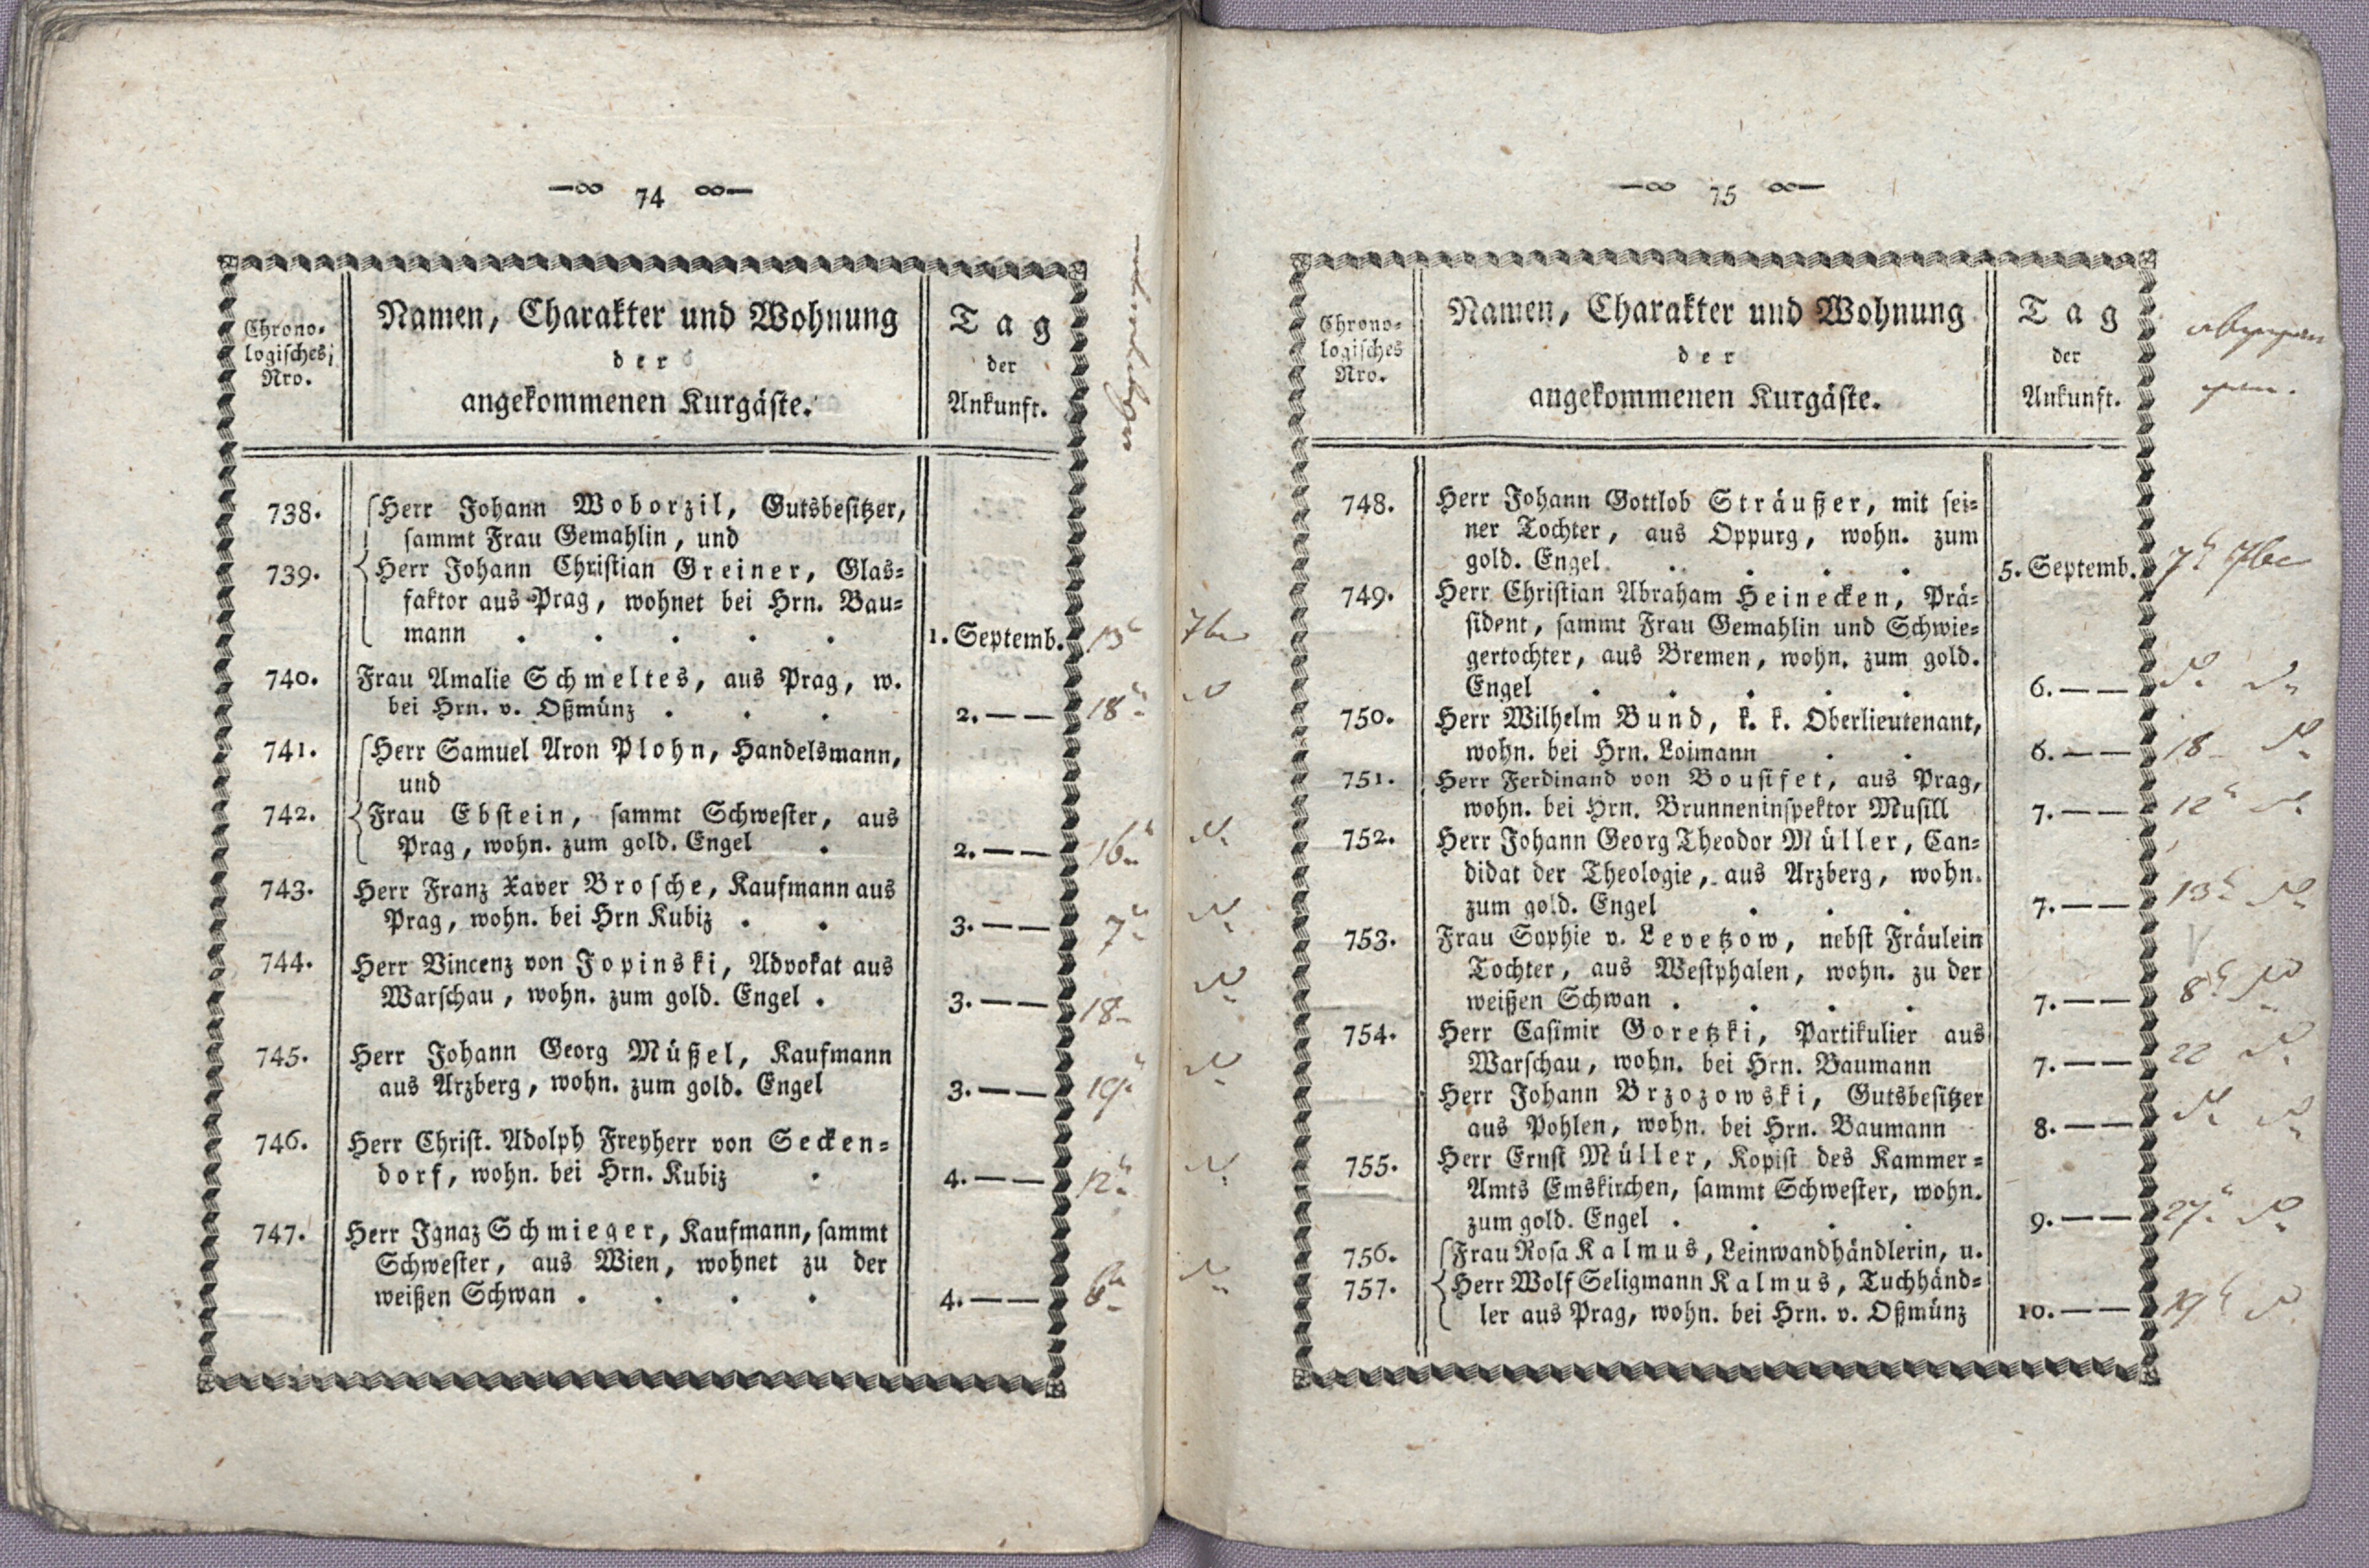 74
Chrono-
logisches
Nro.
Namen, Charakter und Wohnung
der
angekommenen Kurgäste.
Tag
der
Ankunft.
738. Herr Johann Woborzil, Gutsbesitzer,
sammt Frau Gemahlin, und
739. Herr Johann Christian Greiner, Glas-
faktor aus Prag, wohnet bei Hrn. Bau-
mann . . . . . 1. Septemb. 13 7br
740. Frau Amalie Schmeltes, aus Prag, w.
bei Hrn. v. Oßmünz . . . 2. — — 18
741. Herr Samuel Aron Plohn, Handelsmann,
und
742. Frau Ebstein, sammt Schwester, aus
Prag, wohn. zum gold. Engel . 2. — — 16
743. Herr Franz Xaver Brosche, Kaufmann aus
Prag, wohn. bei Hrn Kubiz . . 3. — — 7
744. Herr Vincenz von Jopinski, Advokat aus
Warschau, wohn. zum gold. Engel . 3. — — 18
745. Herr Johann Georg Müßel, Kaufmann
aus Arzberg, wohn. zum gold. Engel 3. — — 19
746. Herr Christ. Adolph Freyherr von Secken-
dorf, wohn. bei Hrn. Kubiz . 4. — — 12
747. Herr Ignaz Schmieger, Kaufmann, sammt
Schwester, aus Wien, wohnet zu der
weißen Schwan . . . . 4. — —
75
Chrono-
logisches
Nro.
Namen, Charakter und Wohnung
der
angekommenen Kurgäste.
Tag
der
Ankunft.
748. Herr Johann Gottlob Sträußer, mit sei-
ner Tochter, aus Oppurg, wohn. zum
gold. Engel . . . . 5. Septemb. 7 7br
749. Herr Christian Abraham Heinecken, Prä-
sident, sammt Frau Gemahlin und Schwie-
gertochter, aus Bremen, wohn. zum gold.
Engel . . . . . 6. — —
750. Herr Wilhelm Bund, k. k. Oberlieutenant,
wohn. bei Hrn. Loimann . . 6. — — 18
751. Herr Ferdinand von Bousifet, aus Prag,
wohn. bei Hrn. Brunneninspektor Musill 7. — — 12
752. Herr Johann Georg Theodor Müller, Can-
didat der Theologie, aus Arzberg, wohn.
zum gold. Engel . . . 7. — — 13
753. Frau Sophie v. Levetzow, nebst Fräulein
Tochter, aus Westphalen, wohn. zu der
weißen Schwan . . . . 7. — — 8
754. Herr Casimir Goretzki, Partikulier aus
Warschau, wohn. bei Hrn. Baumann 7. — — 22
Herr Johann Brzozowski, Gutsbesitzer
aus Pohlen, wohn. bei Hrn. Baumann 8. — —
755. Herr Ernst Müller, Kopist des Kammer-
Amts Emskirchen, sammt Schwester, wohn.
zum gold. Engel . . . . 9. — — 27
756. Frau Rosa Kalmus, Leinwandhändlerin, u.
757. Herr Wolf Seligmann Kalmus, Tuchhänd-
ler aus Prag, wohn. bei Hrn. v. Oßmünz 10. — — 19